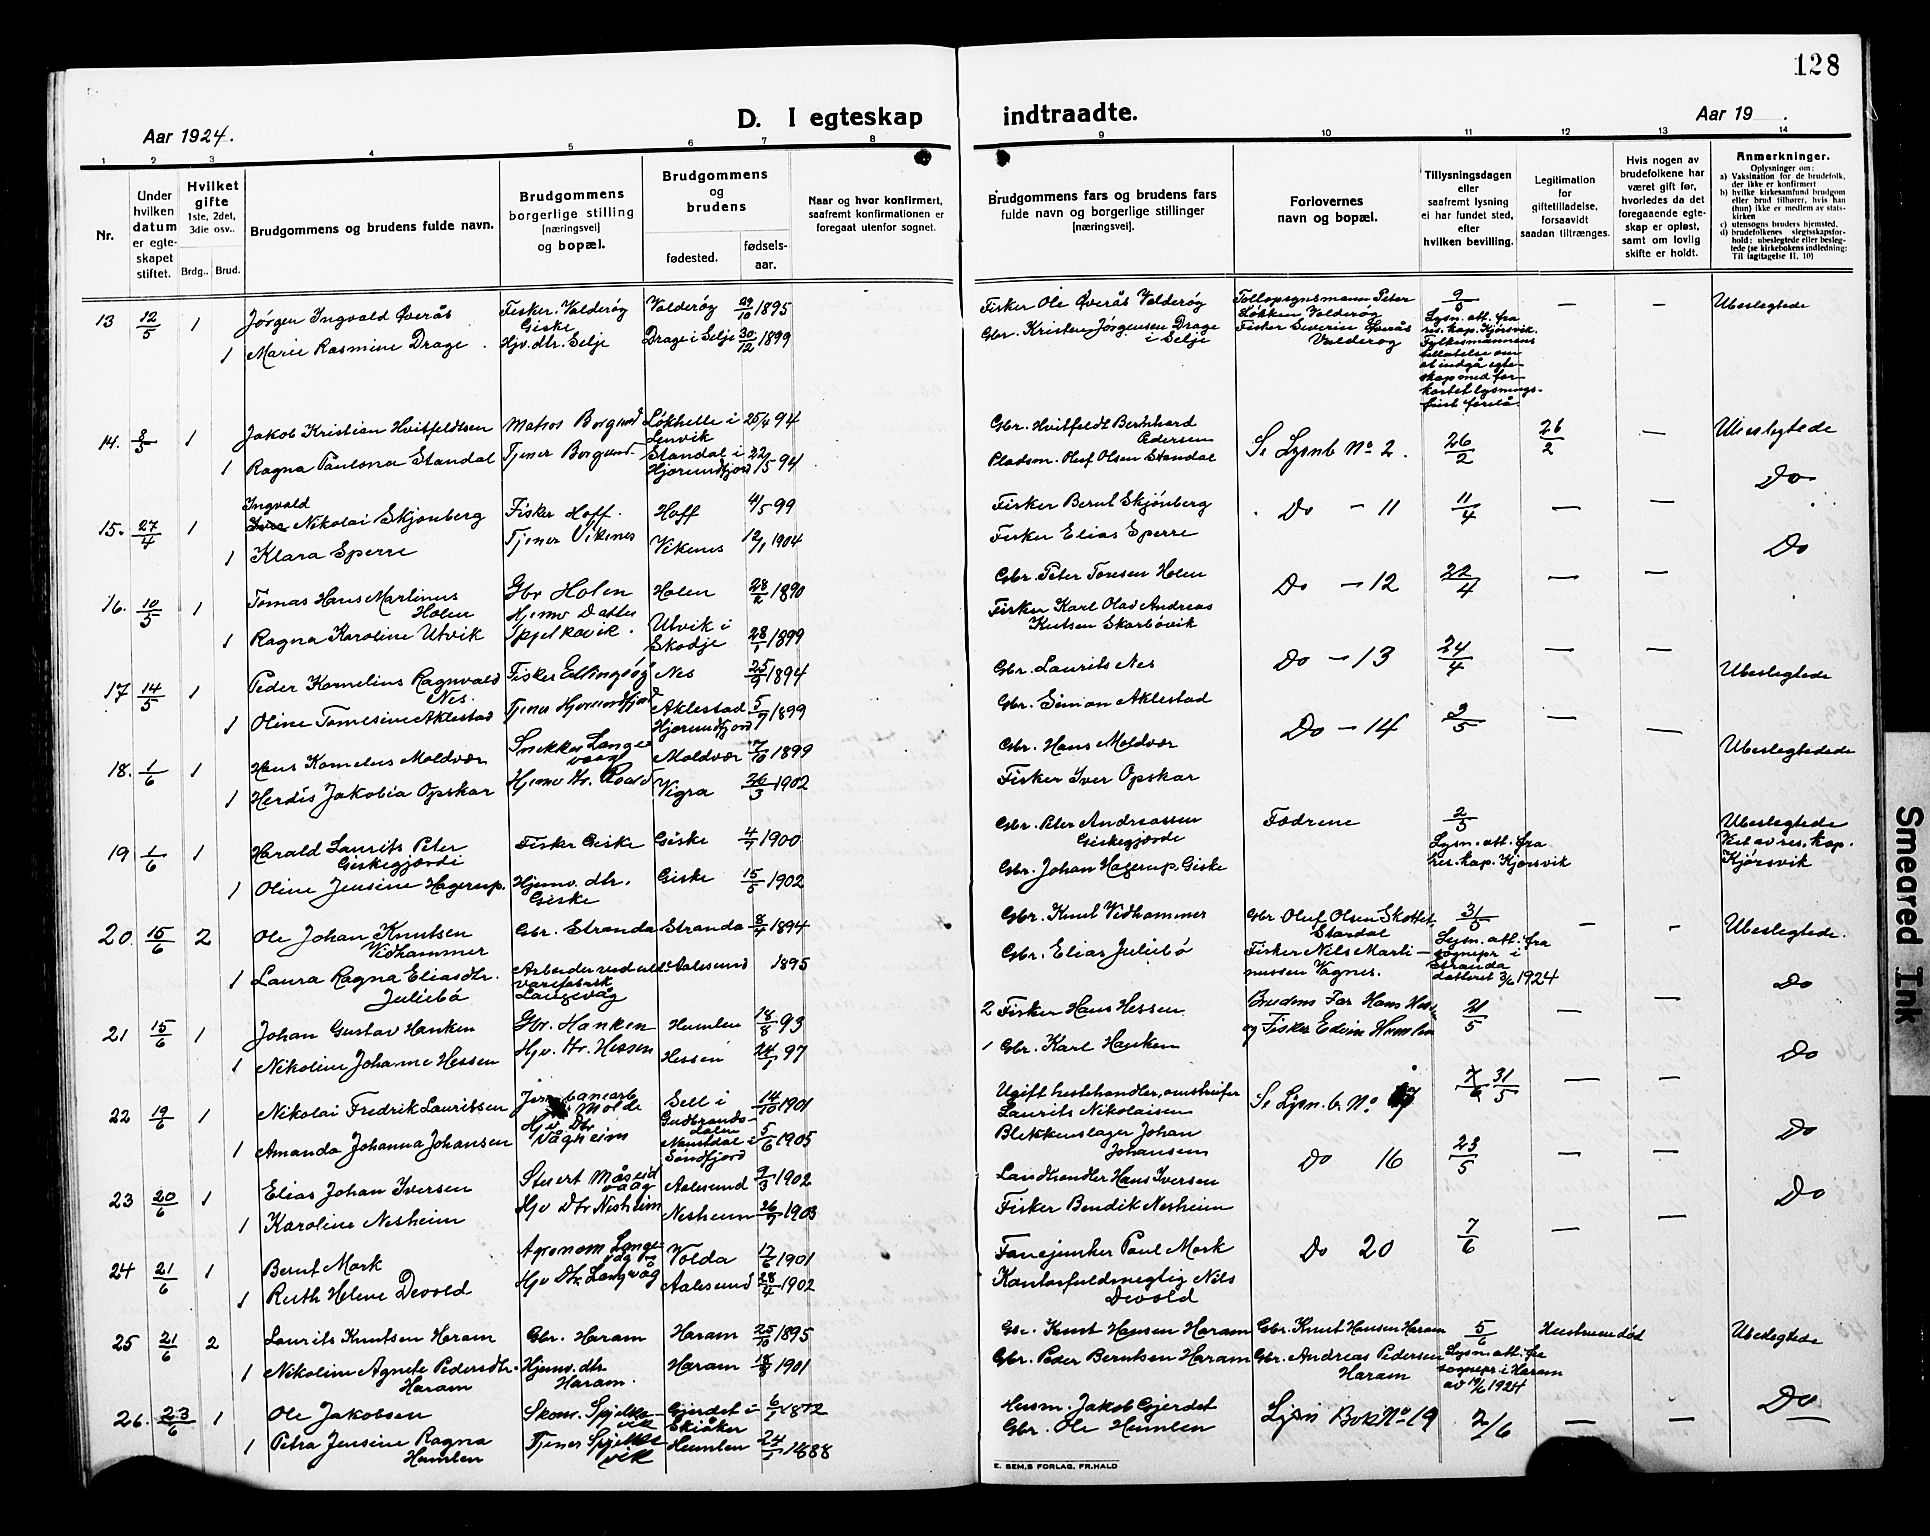 128
D. I egteskap indtraadte.
Aar 1924.
Aar 19 .
1 2 3 4 5 6 7 8 9 10 11 12 13 14
Nr.
Under hvilken datum er egteskapet stiftet.
Hvilket gifte
1ste, 2det, 3die osv..
Brdg.. Brud.
Brudgommens og brudens fulde navn.
Brudgommens borgerlige stilling [næringsvei] og bopæl.
Brudgommens og brudens
fødested.
fødsels-aar.
Naar og hvor konfirmert, saafremt konfirmationen er foregaat utenfor sognet.
Brudgommens fars og brudens fars fulde navn og borgerlige stillinger [næringsvei].
Forlovernes navn og bopæl.
Tillysningsdagen eller saafremt lysning ei har fundet sted, efter hvilken bevilling.
Legitimation for giftetilladelse, forsaavidt saadan tiltrænges.
Hvis nogen av brudefolkene har været gift før, hvorledes da det foregaaende egteskap er opløst, samt om lovlig skifte er holdt.
Anmerkninger.
Oplysninger om:
a) Vaksination for de brudefolk, der ikke er konfirmert
b) hvilke kirkesamfund brudgom eller brud tilhører, hvis han (hun) ikke er medlem av statskirken
c) utensogns bruders hjemsted.
d) brudefolkenes slegtskapsforhold: ubeslegtede eller beslegtede (se kirkebokens indledning: Til iagttagelse 11, 10)
13 12/5 1 Jørgen Ingvald Øverås Fisker. Valderøy Giske Valderøy 29/10 1895 Fisker Ole Øverås Valderøy Tollopsynsmann Peter Løkken Valderøy 9/5 — — Ubeslegtede
1 Marie Rasmine Drage. Hjv. dtr. Selje Drage i Selje 30/12 1899 Gbr. Kristen Jørgensen Drage i Selje Fisker Severin Øverås Valderøy Lysn. att. fra res. kap. Kjørsvik. Fylkesmannens tillatelse om at indgå egteskap med forkortet lysningsfrist forelå.
14. 3/5 1 Jakob Kristian Hvitfeldtsen Matros Borgund Løkhelle i Lenvik 25/4 94 Gbr. Hvitfeldt Bernhard Pedersen Se Lysnb No 2. 26/2 26/2 — Ubeslegtede
1 Ragna Paulona Standal Tjener Borgund. Standal i Hjørundfjord 22/5 94 Pladsm. Oluf Olsen Standal Do
15. 27/4 1 Ingvald Nikolai Skjonberg Fisker Hoff. Hoff 4/5 99 Fisker Bernt Skjønberg Do — 11 11/4 — —
1 Klara Sperre Tjener Vikenes Vikenes 12/1 1904 Fisker Elias Sperre Do
16. 10/5 1 Tomas Hans Martinus Holen Gbr Holen Holen 28/2 1890 Gbr. Peter Toresen Holen Do — 12 22/4 — —
1 Ragna Karoline Utvik Hjemv Datter Spjelkavik. Utvik i Skodje 28/1 1899 Fisker Karl Olav Andreas Knutsen Skarbøvik
17 14/5 1 Peder Kornelius Ragnvald Nes. Fisker Ellingsøy Nes 25/7 1894 Gbr. Laurits Nes Do — 13 24/4 — — Ubeslegtede
1 Oline Tomesine Aklestad Tjener Hjørundfjord Aklestad Hjørundfjord 5/7 1899 Gbr. Simon Aklestad
18. 1/6 1 Hans Kornelius Moldvær Snekker Langevaag Moldvær 7/10 1899 Gbr. Hans Moldvær Do — 14 2/5 — — Ubeslegtedede
1 Herdis Jakobia Opskar Hjemv Dtr. Roald Vigra 26/3 1902 Fisker Iver Opskar
19 1/6 1 Harald Laurits Peter Giskegjærde Fisker Giske Giske 4/7 1900 Gbr. Peter Andreassen Giskegjærde Fædrene 2/5 Ubeslegtede
1 Oline Jensine Hagerup. Hjemv. dtr. Giske Giske 15/5 1902 Gbr. Johan Hagerup, Giske Lysn. att. fra res. kap. Kjørsvik Viet av res. kap. Kjørsvik
20. 15/6 2 Ole Johan Knutsen Vidhammer Gbr. Stranda Stranda 8/4 1894 Gbr. Knut Vidhammer Gbr Oluf Olsen Skottet, Stordal 31/5 — — Ubeslegtede.
1 Laura Ragna Eliasdtr. Juliebø Arbeider ved uldvarefabrik Langevåg Aalesund 1895 Gbr. Elias Juliebø Fisker Nils Martinussen Vagnes. Lysn. att. fra sognepr i Stranda datteret 3/6 1924 Do
21 15/6 1 Johan Gustav Hanken Gbr. Hanken Humlen 18/8 93 2 Fisker Hans Hessen Brudens Far Hans Hessen og Fisker Edvin Humlen 21/5 — —
1 Nikoline Johanne Hessen Hjv. Dtr. Hessen Hessen 24/1 97 1 Gbr. Karl Hanken Do
22 19/6 1 Nikolai Fredrik Lauritsen Molde Sell i Gudbrandsdalen 14/10 1901 Ugift hestehandler, omstreifer Laurits Nikolaisen Se Lysn. b. No 7/6 31/5 — —
1 Amanda Johanna Johansen Hjv Dtr Vågheim i Søndfjord 5/6 1905 Blikkenslager Johan Johansen Do
23 20/6 1 Elias Johan Iversen Stuert Aalesund 9/3 1902 Landhandler Hans Iversen Do 16 23/5 — —
1 Karoline Nesheim Hjv Dtr Nesheim Nesheim 26/7 1903 Fisker Bendik Nesheim Do
24 21/6 1 Bernt Mork Agronom Langevåg Volda 17/6 1901 Fanejunker Paul Mork Do 20 7/6 — —
1 Ruth Helene Devold Hjv Dtr Langevåg Aalesund 28/4 1902 Kontorfuldmegtig Nils Devold
25 21/6 2 Laurits Knutsen Haram Gbr. Haram Haram 25/10 1895 Gbr. Knut Hansen Haram Gbr. Knut Hansen Haram 5/6 Hustruens død Ubeslegtede
1 Nikoline Agnete Pedersdtr. Haram Hjemv. dtr Haram. Haram 18/9 1901 Gbr. Peder Berntsen Haram Gbr. Andreas Pedersen Haram Lysn. att. fra sognepr. i Haram av 19/6 1924
26. 23/6 1 Ole Jakobsen Skom. Spjelkavik Gjerdet i Skiåker 6/1 1872 Husm. Jakob Gjerdet Lysn Bok No 19 2/6 — — Do
1 Petra Jensine Ragna Humlen Tjener Spjelkavik Humlen 24/1 1888 Gbr. Ole Humlen
E. SEM,S FORLAG, FR.HALD
Smeared Ink